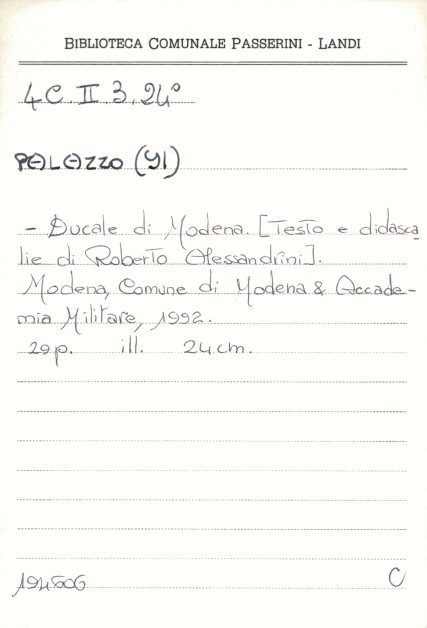 BIBLIOTECA COMUNALE PASSERINI - LANDI
4C II 3.24°
PALAZZO (Yl)
- Ducale di Modena. [Testo e didasca
lie di Roberto Alessandrini].
Modena, Comune di Modena & Accade-
mia Militare, 1992.
29p. ill. 24cm.
C